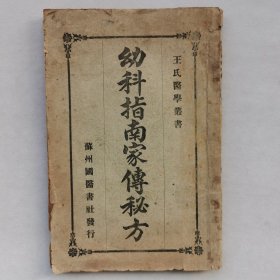 王氏醫學叢書
幼科指南家傳秘方
蘇州國醫書社發行